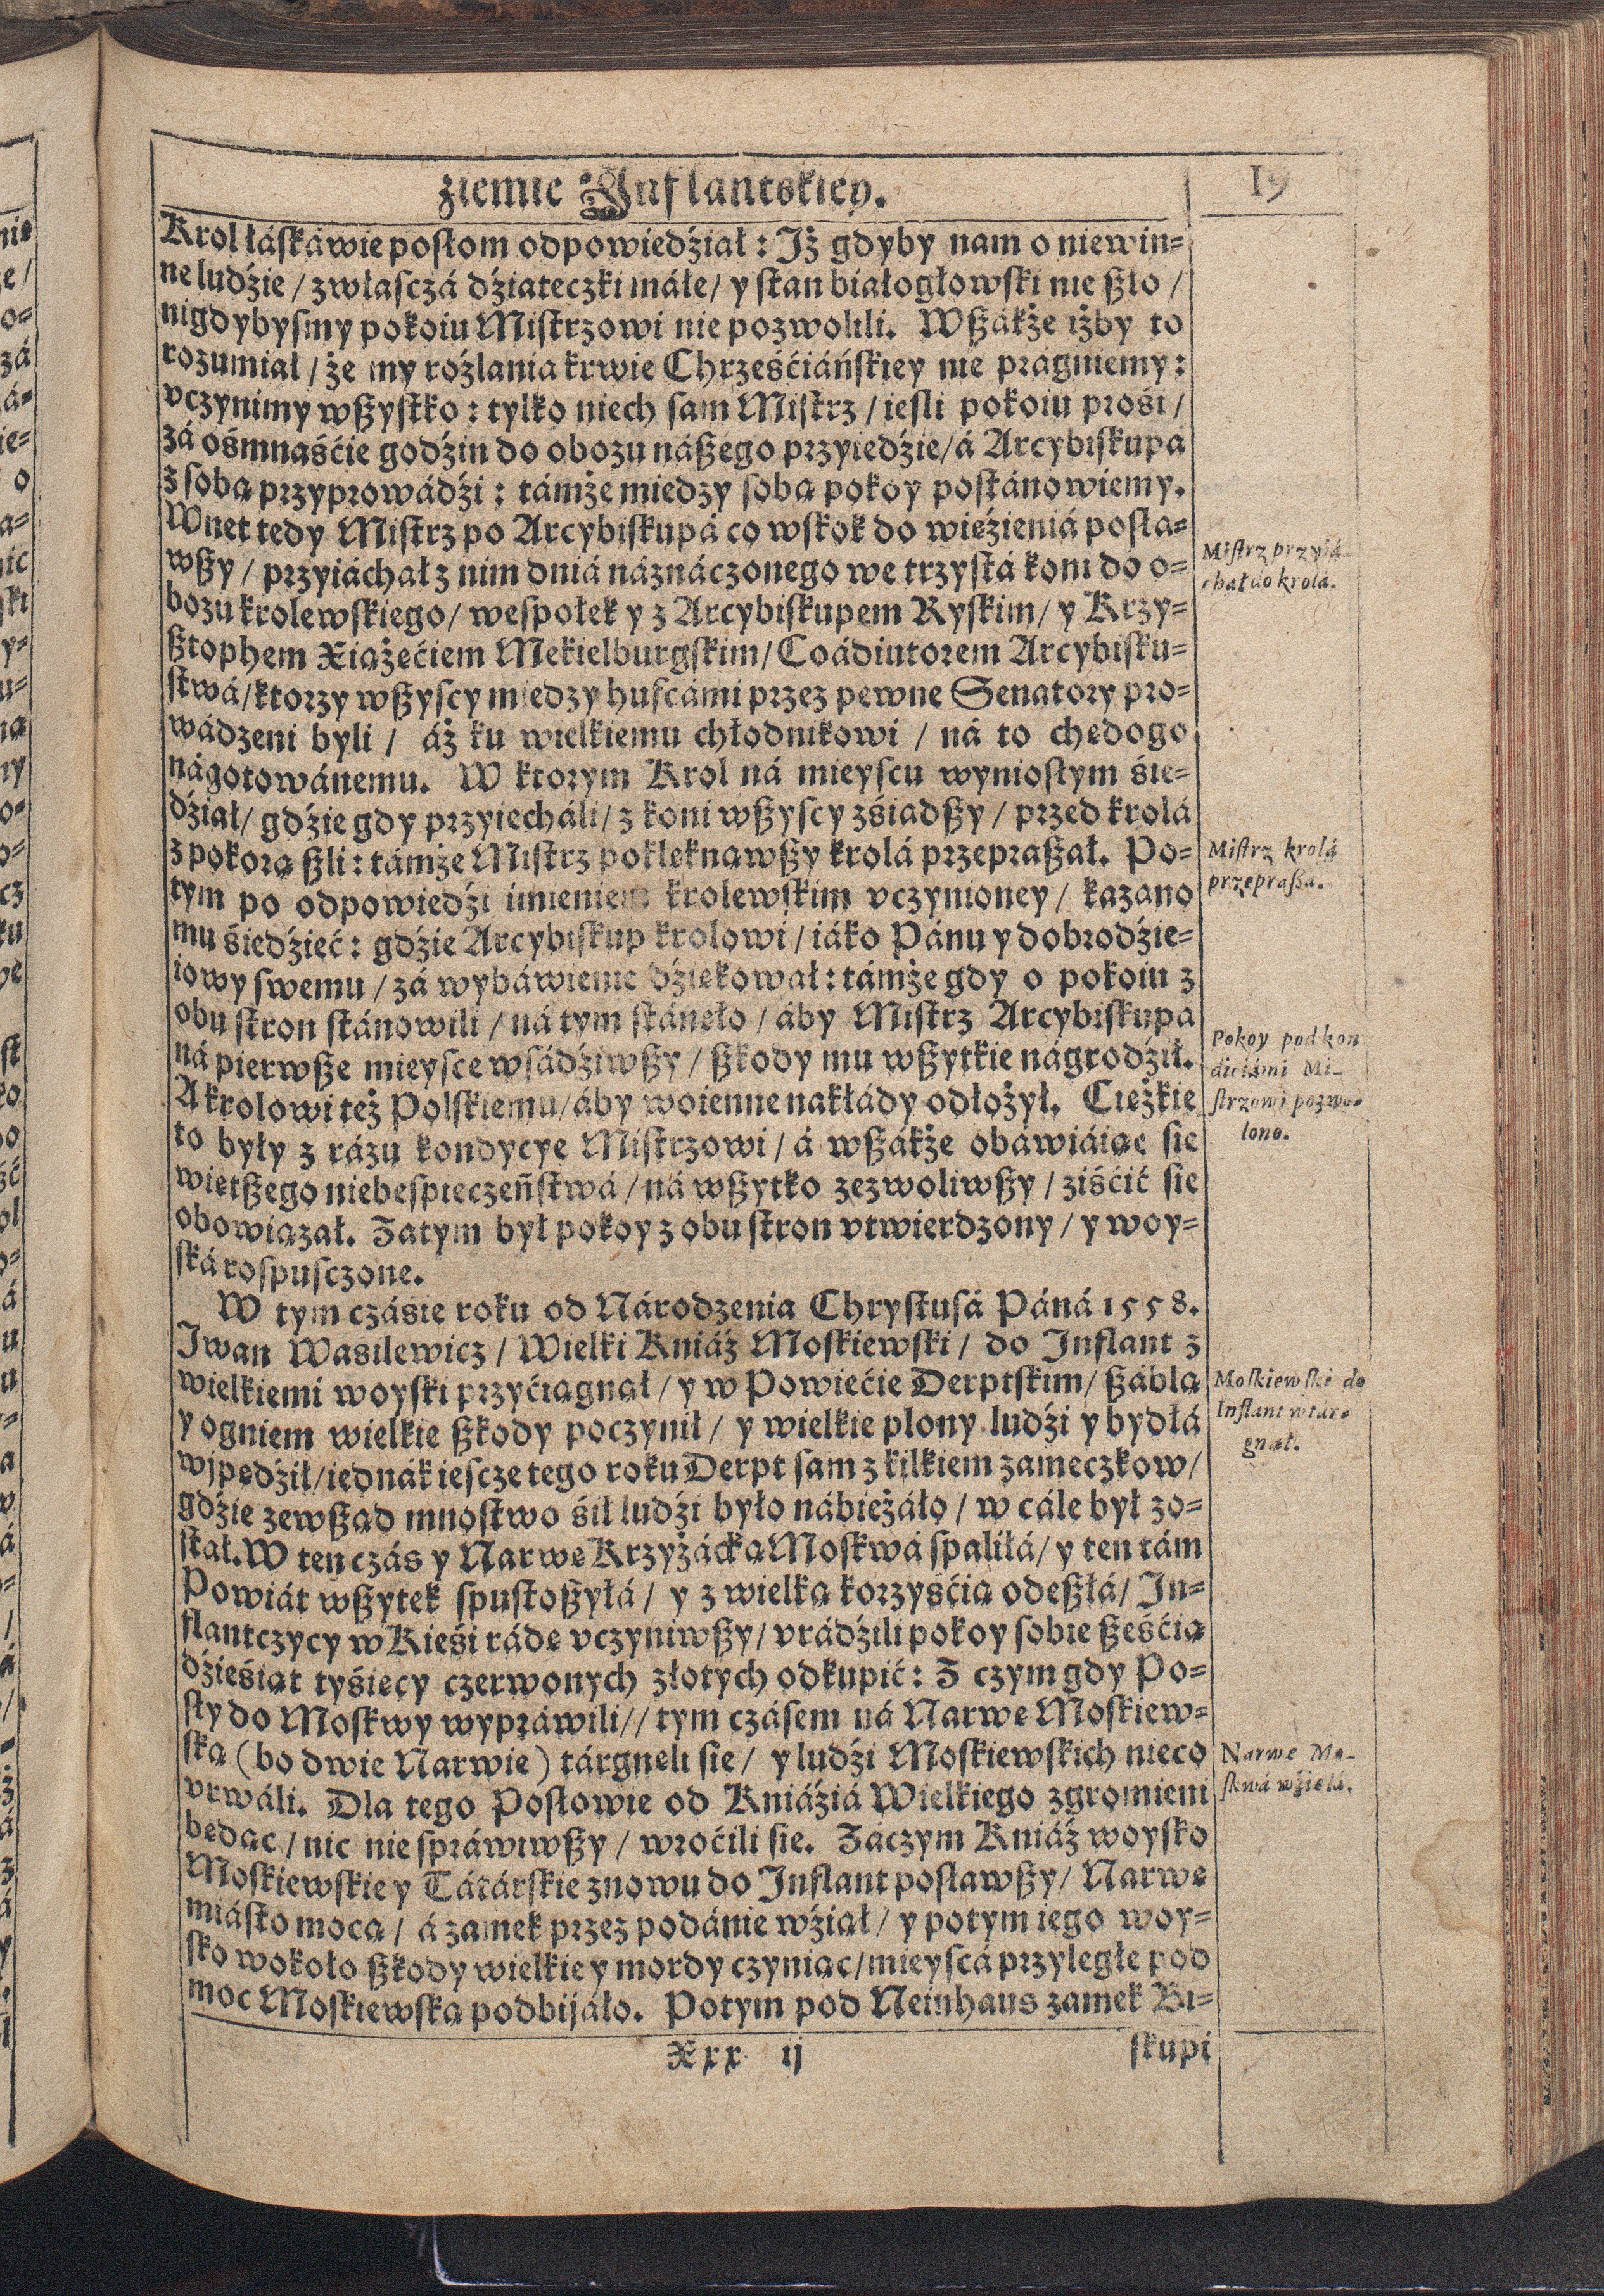 ziemie Inflantskiey.
19
Krol łáskáwie posłom odpowiedźiał: Iż gdyby nam o niewin-
ne ludźie / zwłasczá dźiateczki máłe / y stan białogłowski nie szło /
nigdybysmy pokoiu Mistrzowi nie pozwolili. Wszákże iżby to
rozumiał / że my rozlania krwie Chrześćiáńskiey nie prágniemy:
vczynimy wszystko: tylko niech sam Mistrz / iesli pokoiu prośi /
zá ośmnaśćie godźin do obozu nászego przyiedźie / á Arcybiskupá
z sobą przyprowádźi: támże miedzy sobą pokoy postánowiemy.
Wnet tedy Mistrz po Arcybiskupá co wskok do więźieniá posła-
wszy / przyiáchał z nim dniá náznáczonego we trzystá koni do o-
bozu krolewskiego / wespołek y z Arcybiskupem Ryskim / y Krzy-
sztophem Xiążęćiem Mekielburgskim / Coádiutorem Arcybisku-
stwá / ktorzy wszyscy miedzy hufcámi przez pewne Senatory pro-
wádzeni byli / áż ku wielkiemu chłodnikowi / ná to chędogo
nágotowánemu. W ktorym Krol ná mieyscu wyniosłym śie-
dźiał / gdźie gdy przyiecháli / z koni wszyscy zśiadszy / przed krolá
z pokorą szli: támże Mistrz poklęknąwszy krolá przepraszał. Po-
tym po odpowiedźi imieniem krolewskim vczynioney / kazano
mu śiedźieć: gdźie Arcybiskup krolowi / iáko Pánu y dobrodźie-
iowy swemu / zá wybáwienie dźiękował: támże gdy o pokoiu z
obu stron stánowili / ná tym stánęło / áby Mistrz Arcybiskupa
ná pierwsze mieysce wsádźiwszy / szkody mu wszytkie nágrodźił.
A krolowi też Polskiemu / áby woienne nakłády odłożył. Cięzkie
to były z rázu kondycye Mistrzowi / á wszákże obawiáiąc się
więtszego niebespieczeństwá / ná wszytko zezwoliwszy / ziśćić się
obowiązał. Zátym był pokoy z obu stron vtwierdzony / y woy-
ská rospusczone.
W tym czásie roku od Národzenia Chrystusá Páná 1558.
Iwan Wasilewicz / Wielki Kniáź Moskiewski / do Inflant z
wielkiemi woyski przyćiągnął / y w Powiećie Derptskim / száblą
y ogniem wielkie szkody poczynił / y wielkie plony ludźi y bydłá
wypędźił / iednák iescze tego roku Derpt sam z kilkiem zameczkow /
gdźie zewsząd mnostwo śił ludźi było nábieżáło / w cále był zo-
stał. W ten czás y Narwę Krzyżácką Moskwá spaliłá / y ten tám
Powiát wszytek spustoszyłá / y z wielką korzyśćią odeszłá / In-
flantczycy w Kieśi rádę vczyniwszy / vrádźili pokoy sobie sześćią
dźieśiąt tyśięcy czerwonych złotych odkupić: Z czym gdy Po-
sły do Moskwy wypráwili // tym czásem ná Narwę Moskiew-
ską (bo dwie Narwie) tárgnęli się / y ludźi Moskiewskich nieco
vrwáli. Dla tego Posłowie od Kniáźiá Wielkiego zgromieni
będąc / nic nie spráwiwszy / wroćili się. Záczym Kniáź woysko
Moskiewskie y Tátárskie znowu do Inflant posławszy / Narwę
miásto mocą / á zamek przez podánie wźiął / y potym iego woy-
sko wokoło szkody wielkie y mordy czyniąc / mieyscá przyległe pod
moc Moskiewską podbijáło. Potym pod Neinhaus zamek Bi-
Xxx ij
skupi
Mistrz przyiá-
chał do krolá.
Mistrz krolá
przeprasza.
Pokoy pod kon
diciámi Mi-
strzowi pozwo-
lono.
Moskiewski do
Inflant wtár-
gnął.
Narwę Mo-
skwá wźięłá.